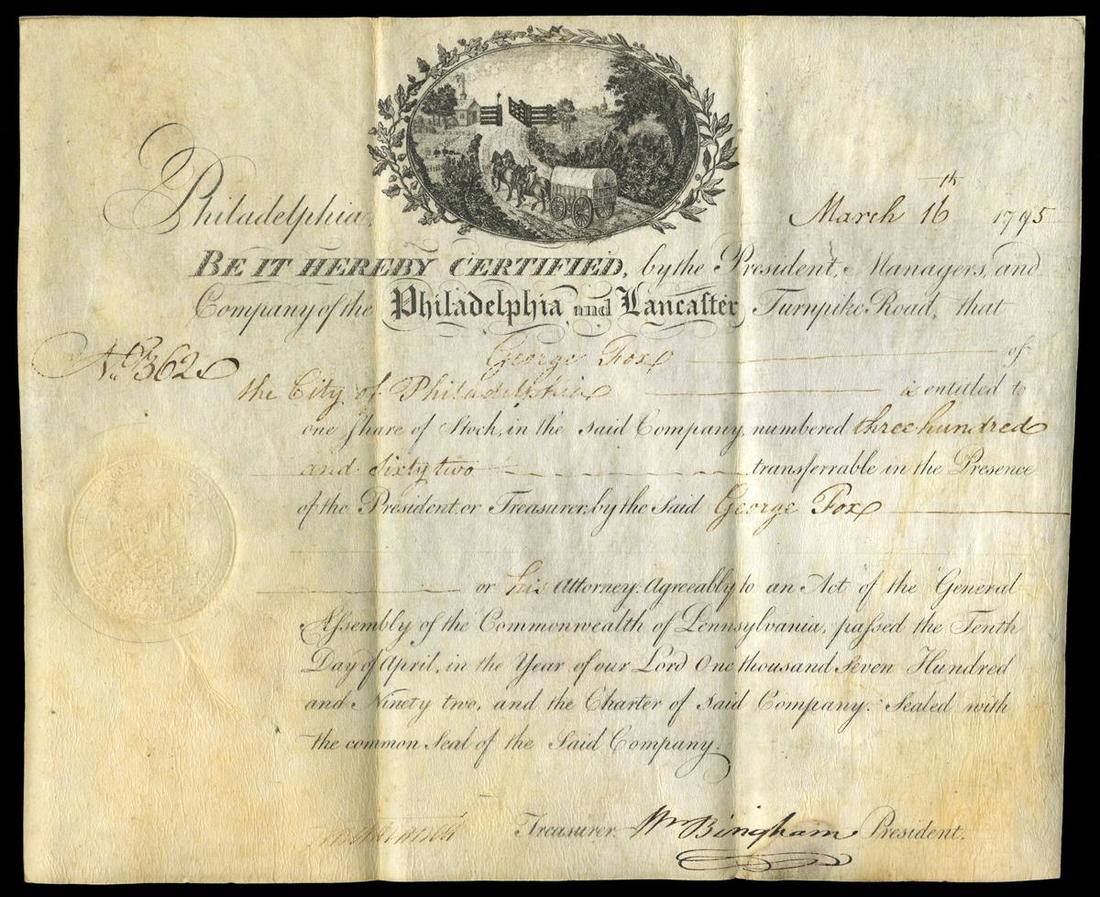 Philadelphia, March 16th 1795
BE IT HEREBY CERTIFIED, by the President, Managers, and
Company of the Philadelphia and Lancaster Turnpike Road, that
No. 362 George Fox of
the City of Philadelphia is entitled to
one Share of Stock, in the said Company, numbered three hundred
and sixty two transferrable in the Presence
of the President or Treasurer, by the said George Fox
or his Attorney: Agreeably to an Act of the General
Assembly of the Commonwealth of Pennsylvania, passed the Tenth
Day of April, in the Year of our Lord One thousand Seven Hundred
and Ninety two, and the Charter of said Company. Sealed with
the common Seal of the Said Company.
Treasurer. Wm Bingham President.